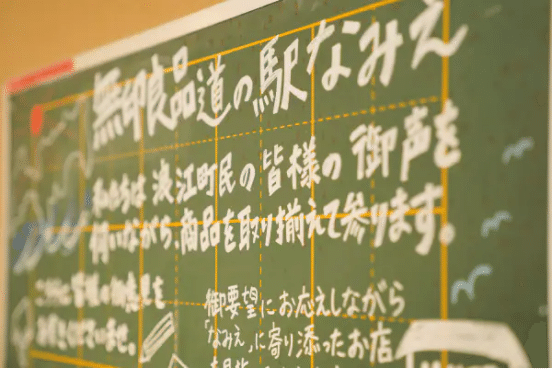 無印良品道の駅なみえ
私たちは浪江町民の皆様の御声を
伺いながら、商品を取り揃えて参ります。
皆様の御意見を
お聞かせ下さいませ。
御要望にお応えしながら
「なみえ」に寄り添ったお店